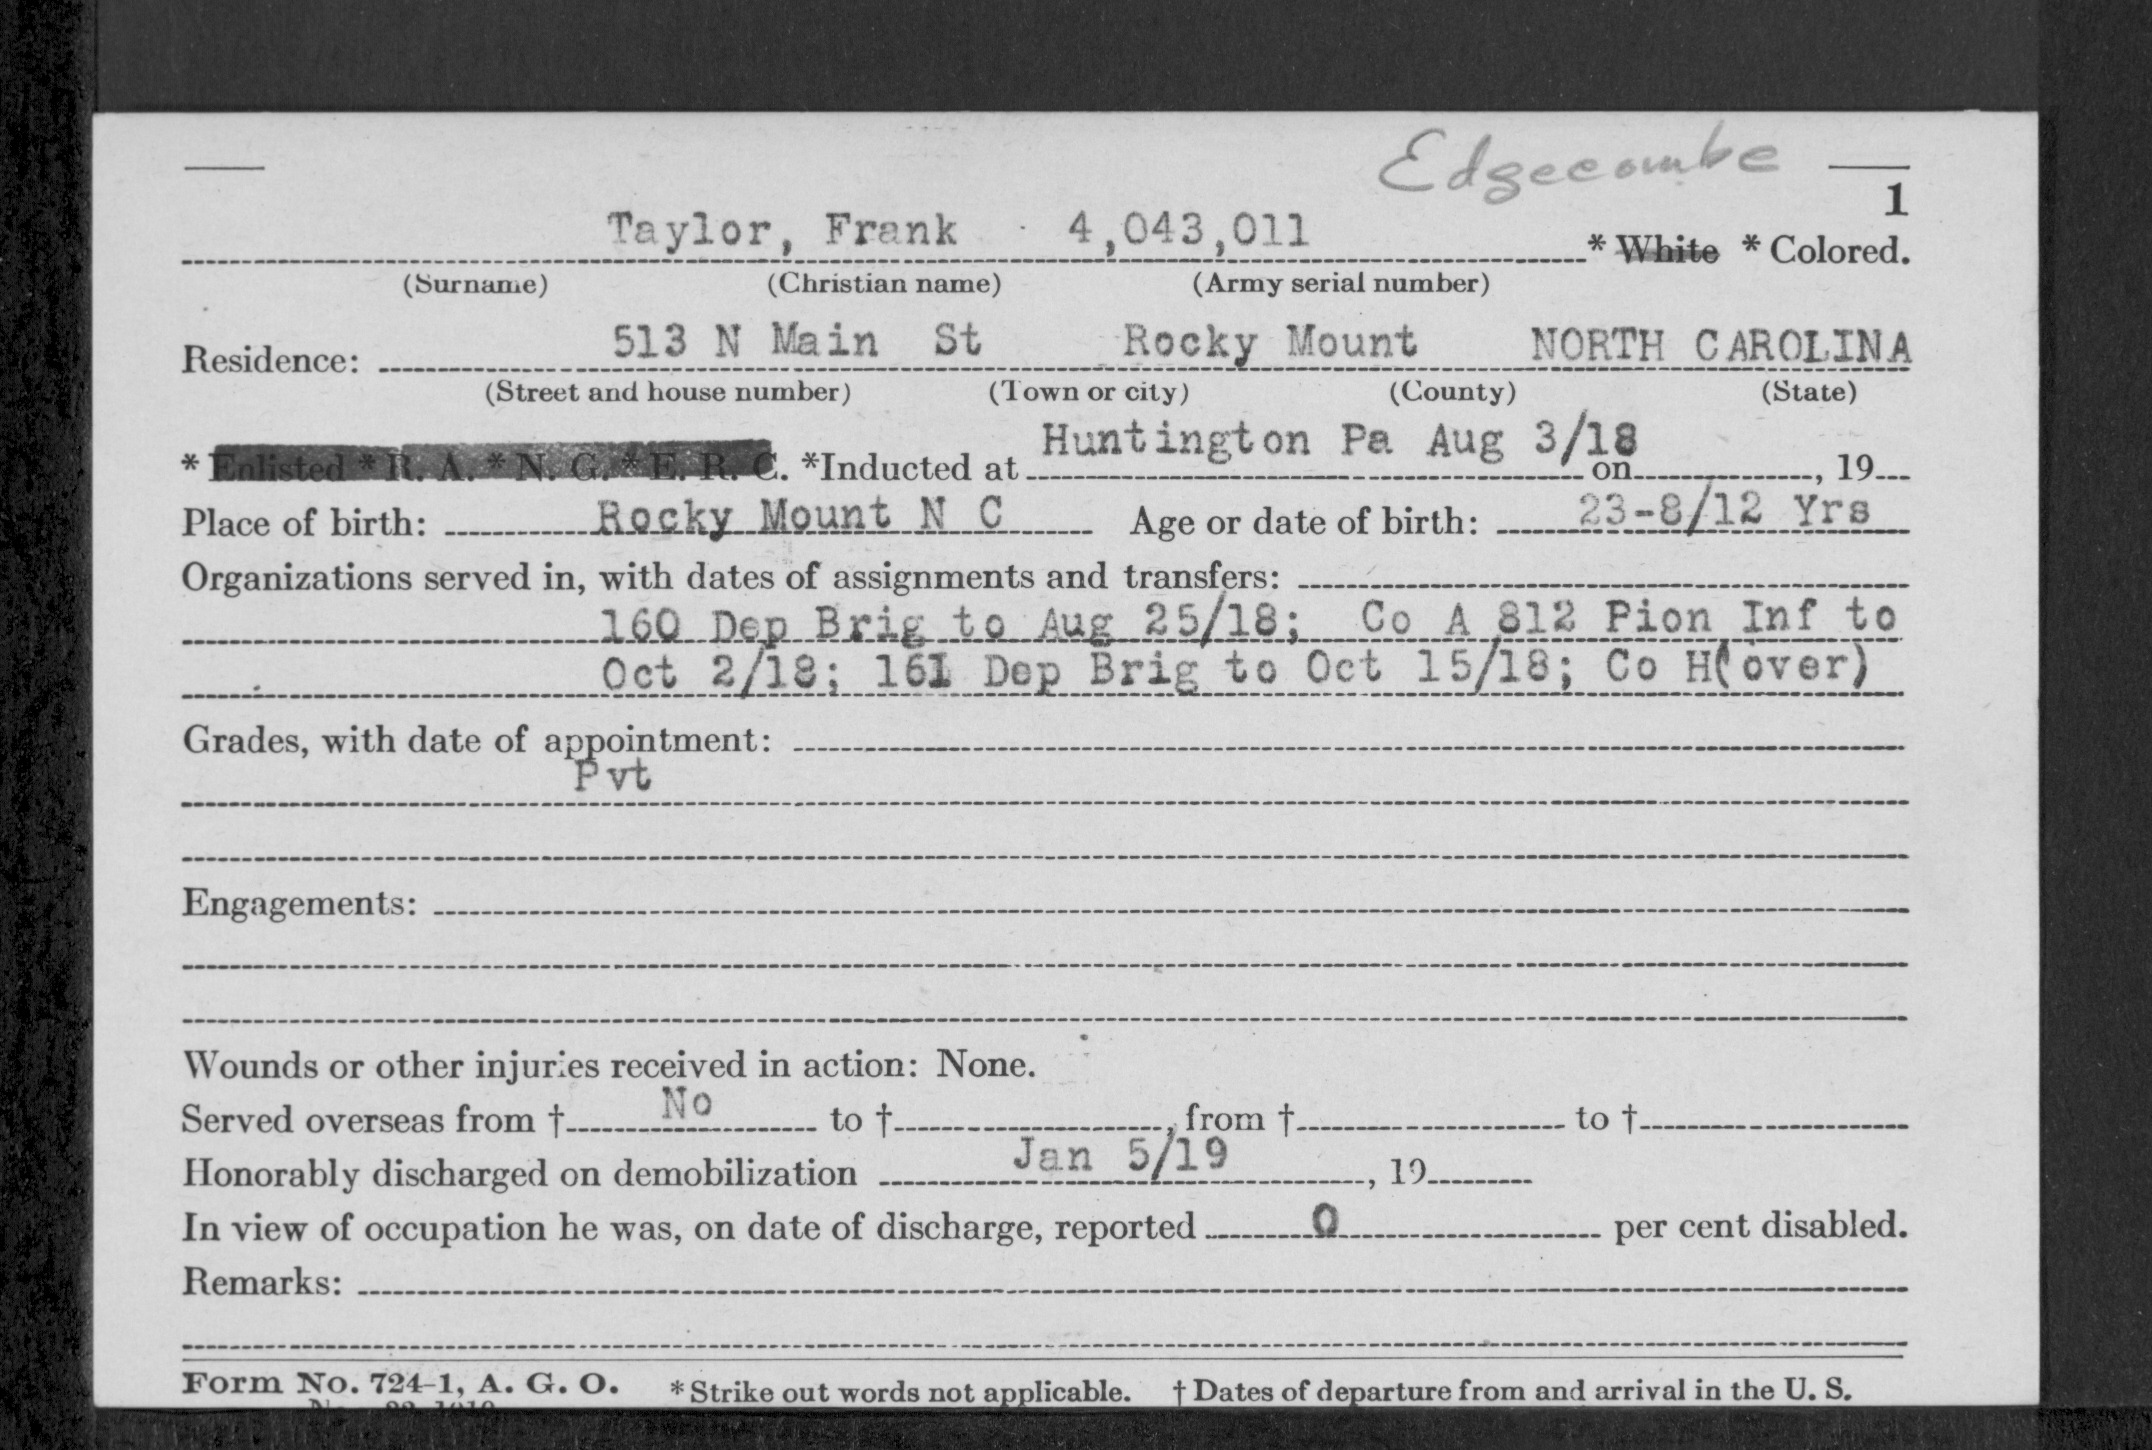 Edgecombe
1
Taylor, Frank 4,043,011 * White * Colored.
(Surname) (Christian name) (Army serial number)
Residence: 513 N Main St Rocky Mount NORTH CAROLINA
(Street and house number) (Town or city) (County) (State)
* Enlisted * R. A. * N. G. * E. R. C. *Inducted at Huntington Pa Aug 3/18 on , 19
Place of birth: Rocky Mount N C Age or date of birth: 23-8/12 Yrs
Organizations served in, with dates of assignments and transfers:
160 Dep Brig to Aug 25/18; Co A 812 Pion Inf to
Oct 2/18; 161 Dep Brig to Oct 15/18; Co H(over)
Grades, with date of appointment:
Pvt
Engagements:
Wounds or other injuries received in action: None.
Served overseas from † No to † , from † to †
Honorably discharged on demobilization Jan 5/19 , 19
In view of occupation he was, on date of discharge, reported 0 per cent disabled.
Remarks:
Form No. 724-1, A. G. O. * Strike out words not applicable. † Dates of departure from and arrival in the U. S.